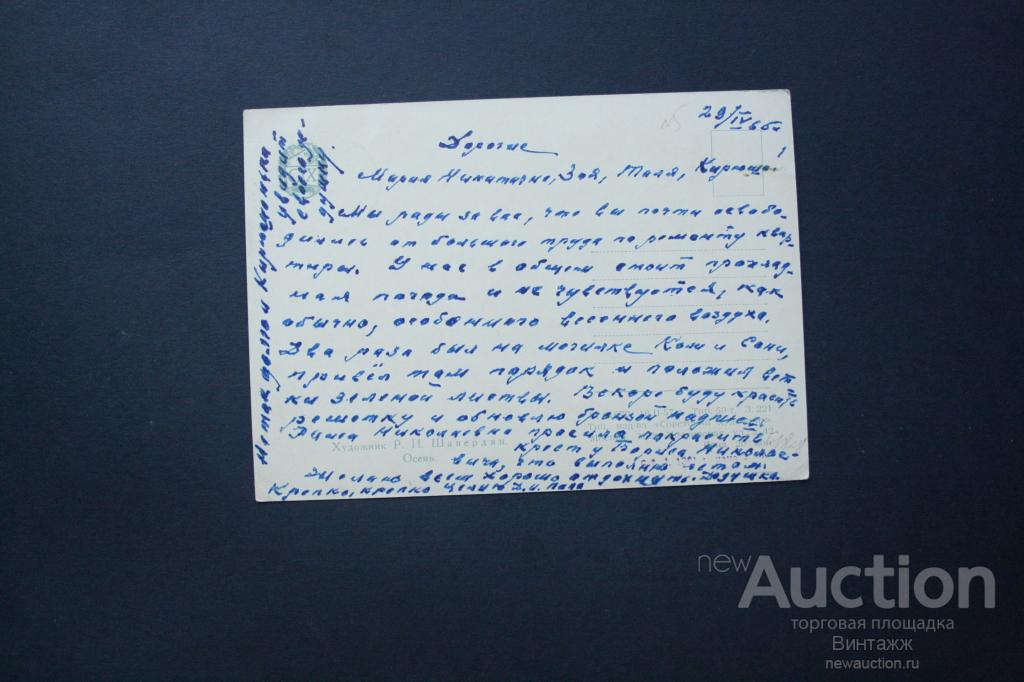 29/IV 65г
Дорогие
Мария Никитична, Зоя, Таля, Кирюша
Мы рады за вас, что вы почти освобо-
дились от большого труда по ремонту квар-
тиры. У нас в общем стоит прохлад-
ная погода и не чувствуется, как
обычно, особенного весеннего воздуха.
Два раза был на могилке Коли и Сони,
привёл там порядок и положил вет
ки зеленой листвы. Вскоре буду красить
решетку и обновлю бронзой надпись
Раиса Николаевна просила покрасить
крест у Бориса Николае-
вича, что выполню летом.
Желаю всем хорошо отдохнуть. Дедушка.
Крепко, крепко целую д. и папа
Не так долго и Кирюшенька
увидит
своего
душку.
Художник Р. И. Шавердян.
Осень.
newAuction
торговая площадка
Винтажж
newauction.ru